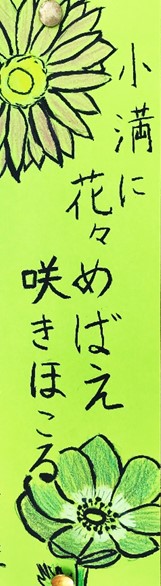 小満に
花々めばえ
咲きほこる